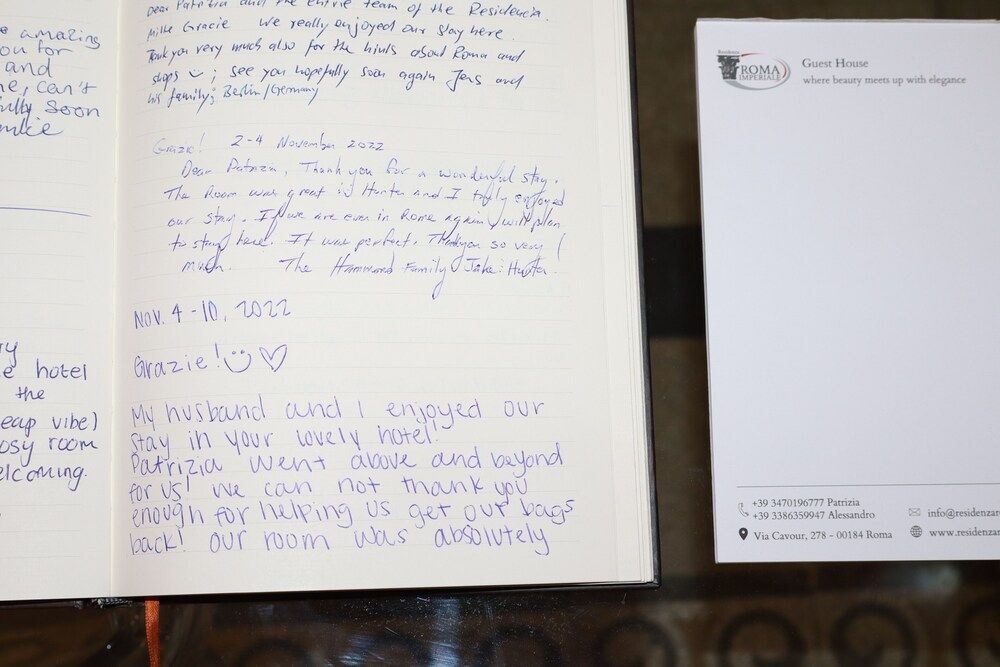 amazing
ou for
and
ne, can't
fully soon
Dear Patrizia and the entire team of the Residencia.
Mille Gracie we really enjoyed our stay here.
Thank you very much also for the hints about Roma and
shops ; see you hopefully soon again Jens and
his family; Berlin/Germany
Grazie! 2-4 November 2022
Dear Patrizia, Thank you for a wonderful stay.
The Room was great Hunter and I enjoyed
our stay. If we are ever in Rome again will plan
to stay here. It was perfect. Thank you so very
much. The Hammond Family Jake : Hunter.
Nov. 4-10, 2022
Grazie!
My husband and I enjoyed our
stay in your lovely hotel.
Patrizia went above and beyond
for us! We can not thank you
enough for helping us get our bags
back! Our room was absolutely
ry
e hotel
the
eap vibe)
osy room
elcoming.
Residenza
ROMA
IMPERIALE
Guest House
where beauty meets up with elegance
+39 3470196777 Patrizia
+39 3386359947 Alessandro
Via Cavour, 278 - 00184 Roma
info@residenzar
www.residenzar